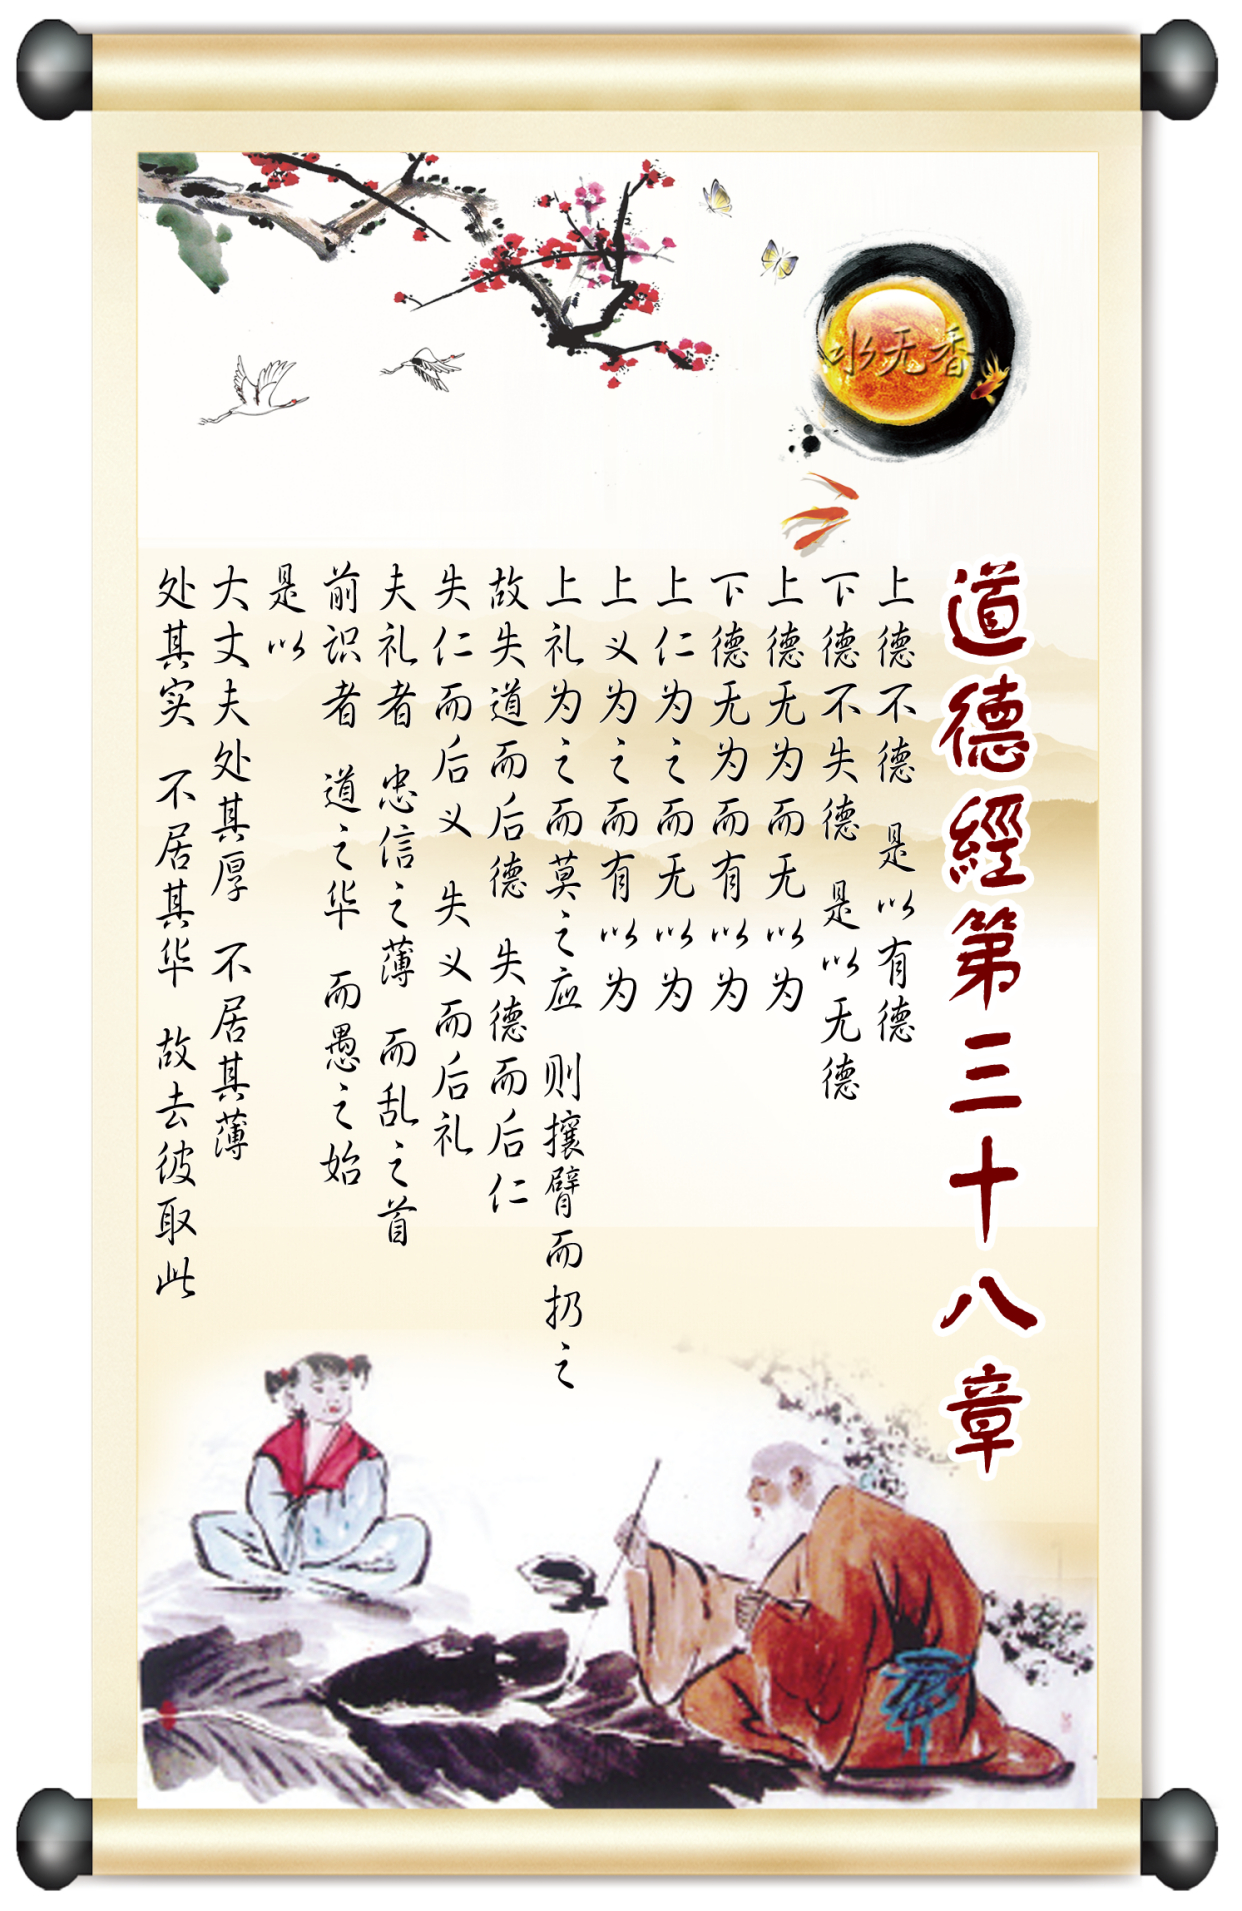 水无香
道德經第三十八章
上德不德 是以有德
下德不失德 是以无德
上德无为而无以为
下德无为而有以为
上仁为之而无以为
上义为之而有以为
上礼为之而莫之应 则攘臂而扔之
故失道而后德 失德而后仁
失仁而后义 失义而后礼
夫礼者 忠信之薄 而乱之首
前识者 道之华 而愚之始
是以
大丈夫处其厚 不居其薄
处其实 不居其华 故去彼取此